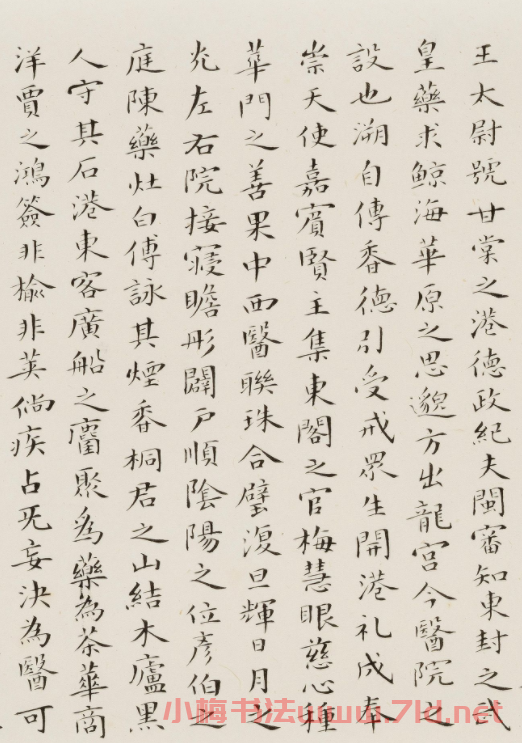 王太尉號甘棠之港德政紀夫閩審知東封之武
皇藥求鲸海華原之思邈方出龍宮今醫院之
設也溯自傳香德引受戒眾生開港礼成奉
崇天使嘉賓賢主集東閣之官梅慧眼慈心種
華門之善果中西醫聯珠合璧復旦輝日月之
光左右院接寢瞻彤闢户順陰陽之位彥伯之
庭陳藥灶白傅詠其煙香桐君之山結木廬黑
人守其石港東客廣船之麕聚為藥為茶華商
洋賈之鴻簽非榆非英倘疾占旡妄決為醫可
小梅书法www.7ltl.net